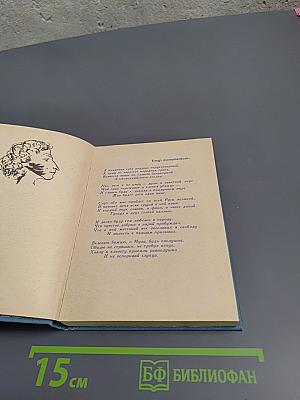 Exegi monumentum.
Я памятник себе воздвиг нерукотворный,
К нему не зарастет народная тропа,
Вознесся выше он главою непокорной
Александрийского столпа.
Нет, весь я не умру — душа в заветной лире
Мой прах переживет и тленья убежит —
И славен буду я, доколь в подлунном мире
Жив будет хоть один пиит.
Слух обо мне пройдет по всей Руси великой,
И назовет меня всяк сущий в ней язык,
И гордый внук славян, и финн, и ныне дикой
Тунгус, и друг степей калмык.
И долго буду тем любезен я народу,
Что чувства добрые я лирой пробуждал,
Что в мой жестокий век восславил я свободу
И милость к падшим призывал.
Веленью божию, о Муза, будь послушна,
Обиды не страшась, не требуя венца,
Хвалу и клевету приемли равнодушно
И не оспоривай глупца.
15 см
БФ БИБЛИОФАН